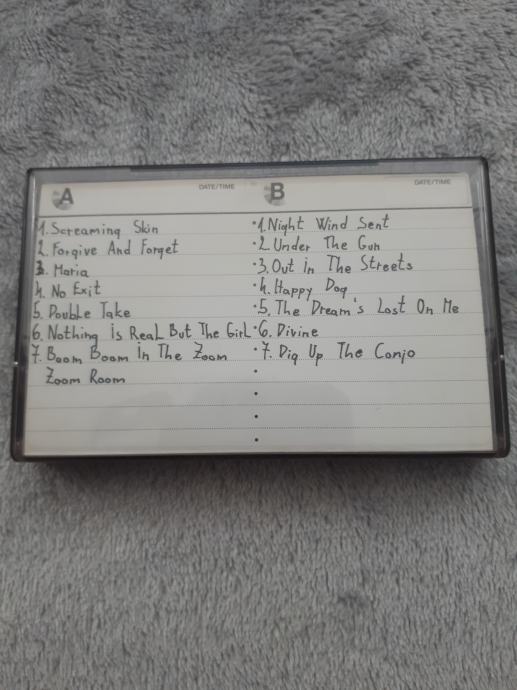 A DATE/TIME
1. Screaming Skin
2. Forgive And Forget
3. Maria
4. No Exit
5. Double Take
6. Nothing is Real But The Girl
7. Boom Boom In The Zoom
Zoom Room
B DATE/TIME
1. Night Wind Sent
2. Under The Gun
3. Out in The Streets
4. Happy Dog
5. The Dream's Lost On Me
6. Divine
7. Dig Up The Conjo